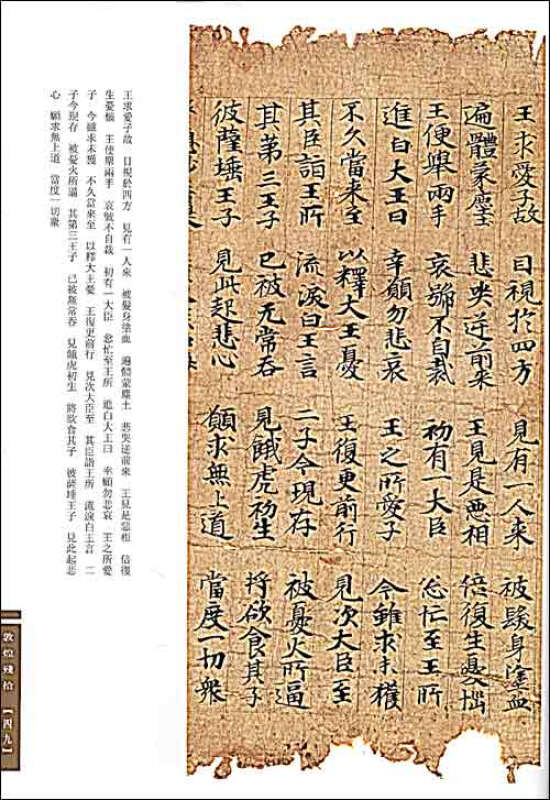 王求愛子故 目視於四方 見有一人来 被髮身塗血
遍體蒙塵土 悲哭逆前来 王見是惡相 倍復生憂惱
王便舉兩手 哀號不自裁 初有一大臣 怱忙至王所
進白大王曰 幸願勿悲哀 王之所愛子 今雖求未獲
不久當来至 以釋大王憂 王復更前行 見次大臣至
其臣詣王所 流淚白王言 二子今現存 被憂火所逼
其第三王子 已被无常吞 見餓虎初生 將欲食其子
彼薩埵王子 見此起悲心 願求無上道 當度一切衆
王求愛子故 目視於四方 見有一人來 被髮身塗血 遍體蒙塵土 悲哭逆前來 王見是惡相 倍復
生憂惱 王便舉兩手 哀號不自裁 初有一大臣 怱忙至王所 進白大王曰 幸願勿悲哀 王之所愛
子 今雖求未獲 不久當來至 以釋大王憂 王復更前行 見次大臣至 其臣詣王所 流淚白王言 二
子今現存 被憂火所逼 其第三王子 已被無常吞 見餓虎初生 將欲食其子 彼薩埵王子 見此起悲
心 願求無上道 當度一切衆
敦煌殘拾【四九】